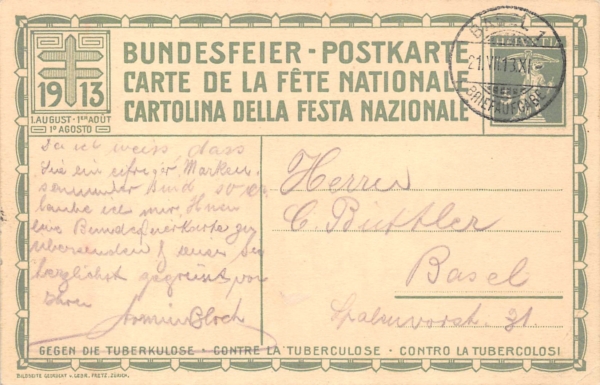 BUNDESFEIER - POSTKARTE
CARTE DE LA FÊTE NATIONALE
CARTOLINA DELLA FESTA NAZIONALE
1913
1.AUGUST - 1ER AOÛT
1º AGOSTO
BASEL 1
21.VII.13.XI-
BRIEFAUFGABE
Da ich weiss dass
Sie ein eifriger Marken-
sammler sind so er-
laube ich mir, Ihnen
eine Bundesfeierkarte zu
übersenden &
herzlichst gegrüsst von
Ihrem
Armin Bloch
Herrn
C. Büttler
Basel
31.
GEGEN DIE TUBERKULOSE - CONTRE LA TUBERCULOSE - CONTRO LA TUBERCOLOSI
BILDSEITE GEDRUCKT V. GEBR. FRETZ, ZÜRICH.